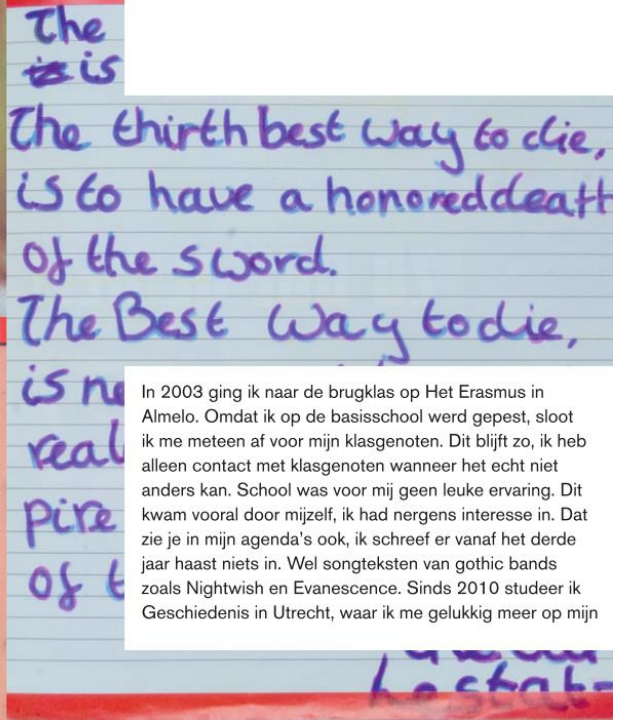 The
is
The thirth best way to die,
is to have a honored death
of the sword.
The Best Way to die,
is ne
real
pire
of t
In 2003 ging ik naar de brugklas op Het Erasmus in
Almelo. Omdat ik op de basisschool werd gepest, sloot
ik me meteen af voor mijn klasgenoten. Dit blijft zo, ik heb
alleen contact met klasgenoten wanneer het echt niet
anders kan. School was voor mij geen leuke ervaring. Dit
kwam vooral door mijzelf, ik had nergens interesse in. Dat
zie je in mijn agenda's ook, ik schreef er vanaf het derde
jaar haast niets in. Wel songteksten van gothic bands
zoals Nightwish en Evanescence. Sinds 2010 studeer ik
Geschiedenis in Utrecht, waar ik me gelukkig meer op mijn